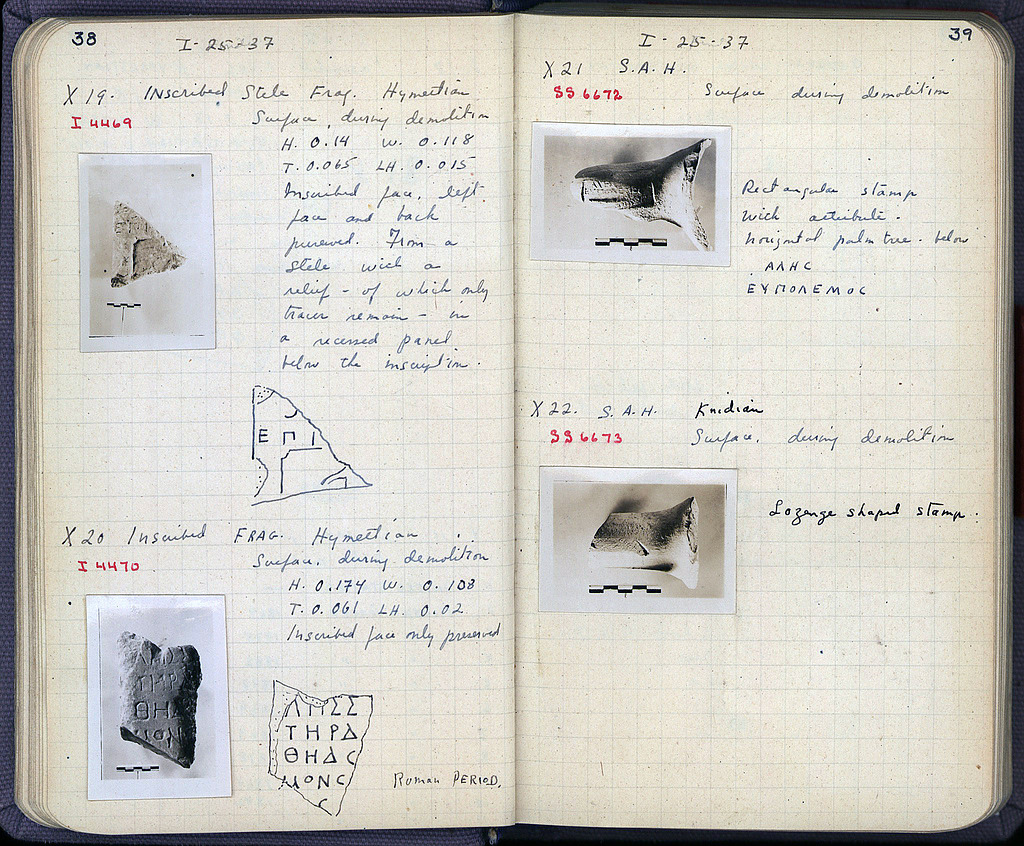 38
I-25-37
X 19. Inscribed Stele Frag. Hymettian
I 4469
Surface, during demolition
H. 0.14 W. 0.118
T. 0.065 LH. 0.015
Inscribed face, left
face and back
preserved. From a
stele with a
relief - of which only
traces remain - in
a recessed panel
below the inscription.
Ε Π Ι
X 20 Inscribed FRAG. Hymettian
I 4470
Surface, during demolition
H. 0.174 W. 0.108
T. 0.061 LH. 0.02
Inscribed face only preserved
ΛΗΣΣ
ΤΗΡΔ
ΘΗΔC
ΜΟΝC
C
Roman PERIOD.
39
I-25-37
X 21 S.A.H.
SS 6672
Surface during demolition
Rectangular stamp
with attribute.
horizontal palm tree. below
ΑΛΗC
ΕΥΠΟΛΕΜΟC
X 22. S.A.H. Knidian
SS 6673
Surface, during demolition
Lozenge shaped stamp.